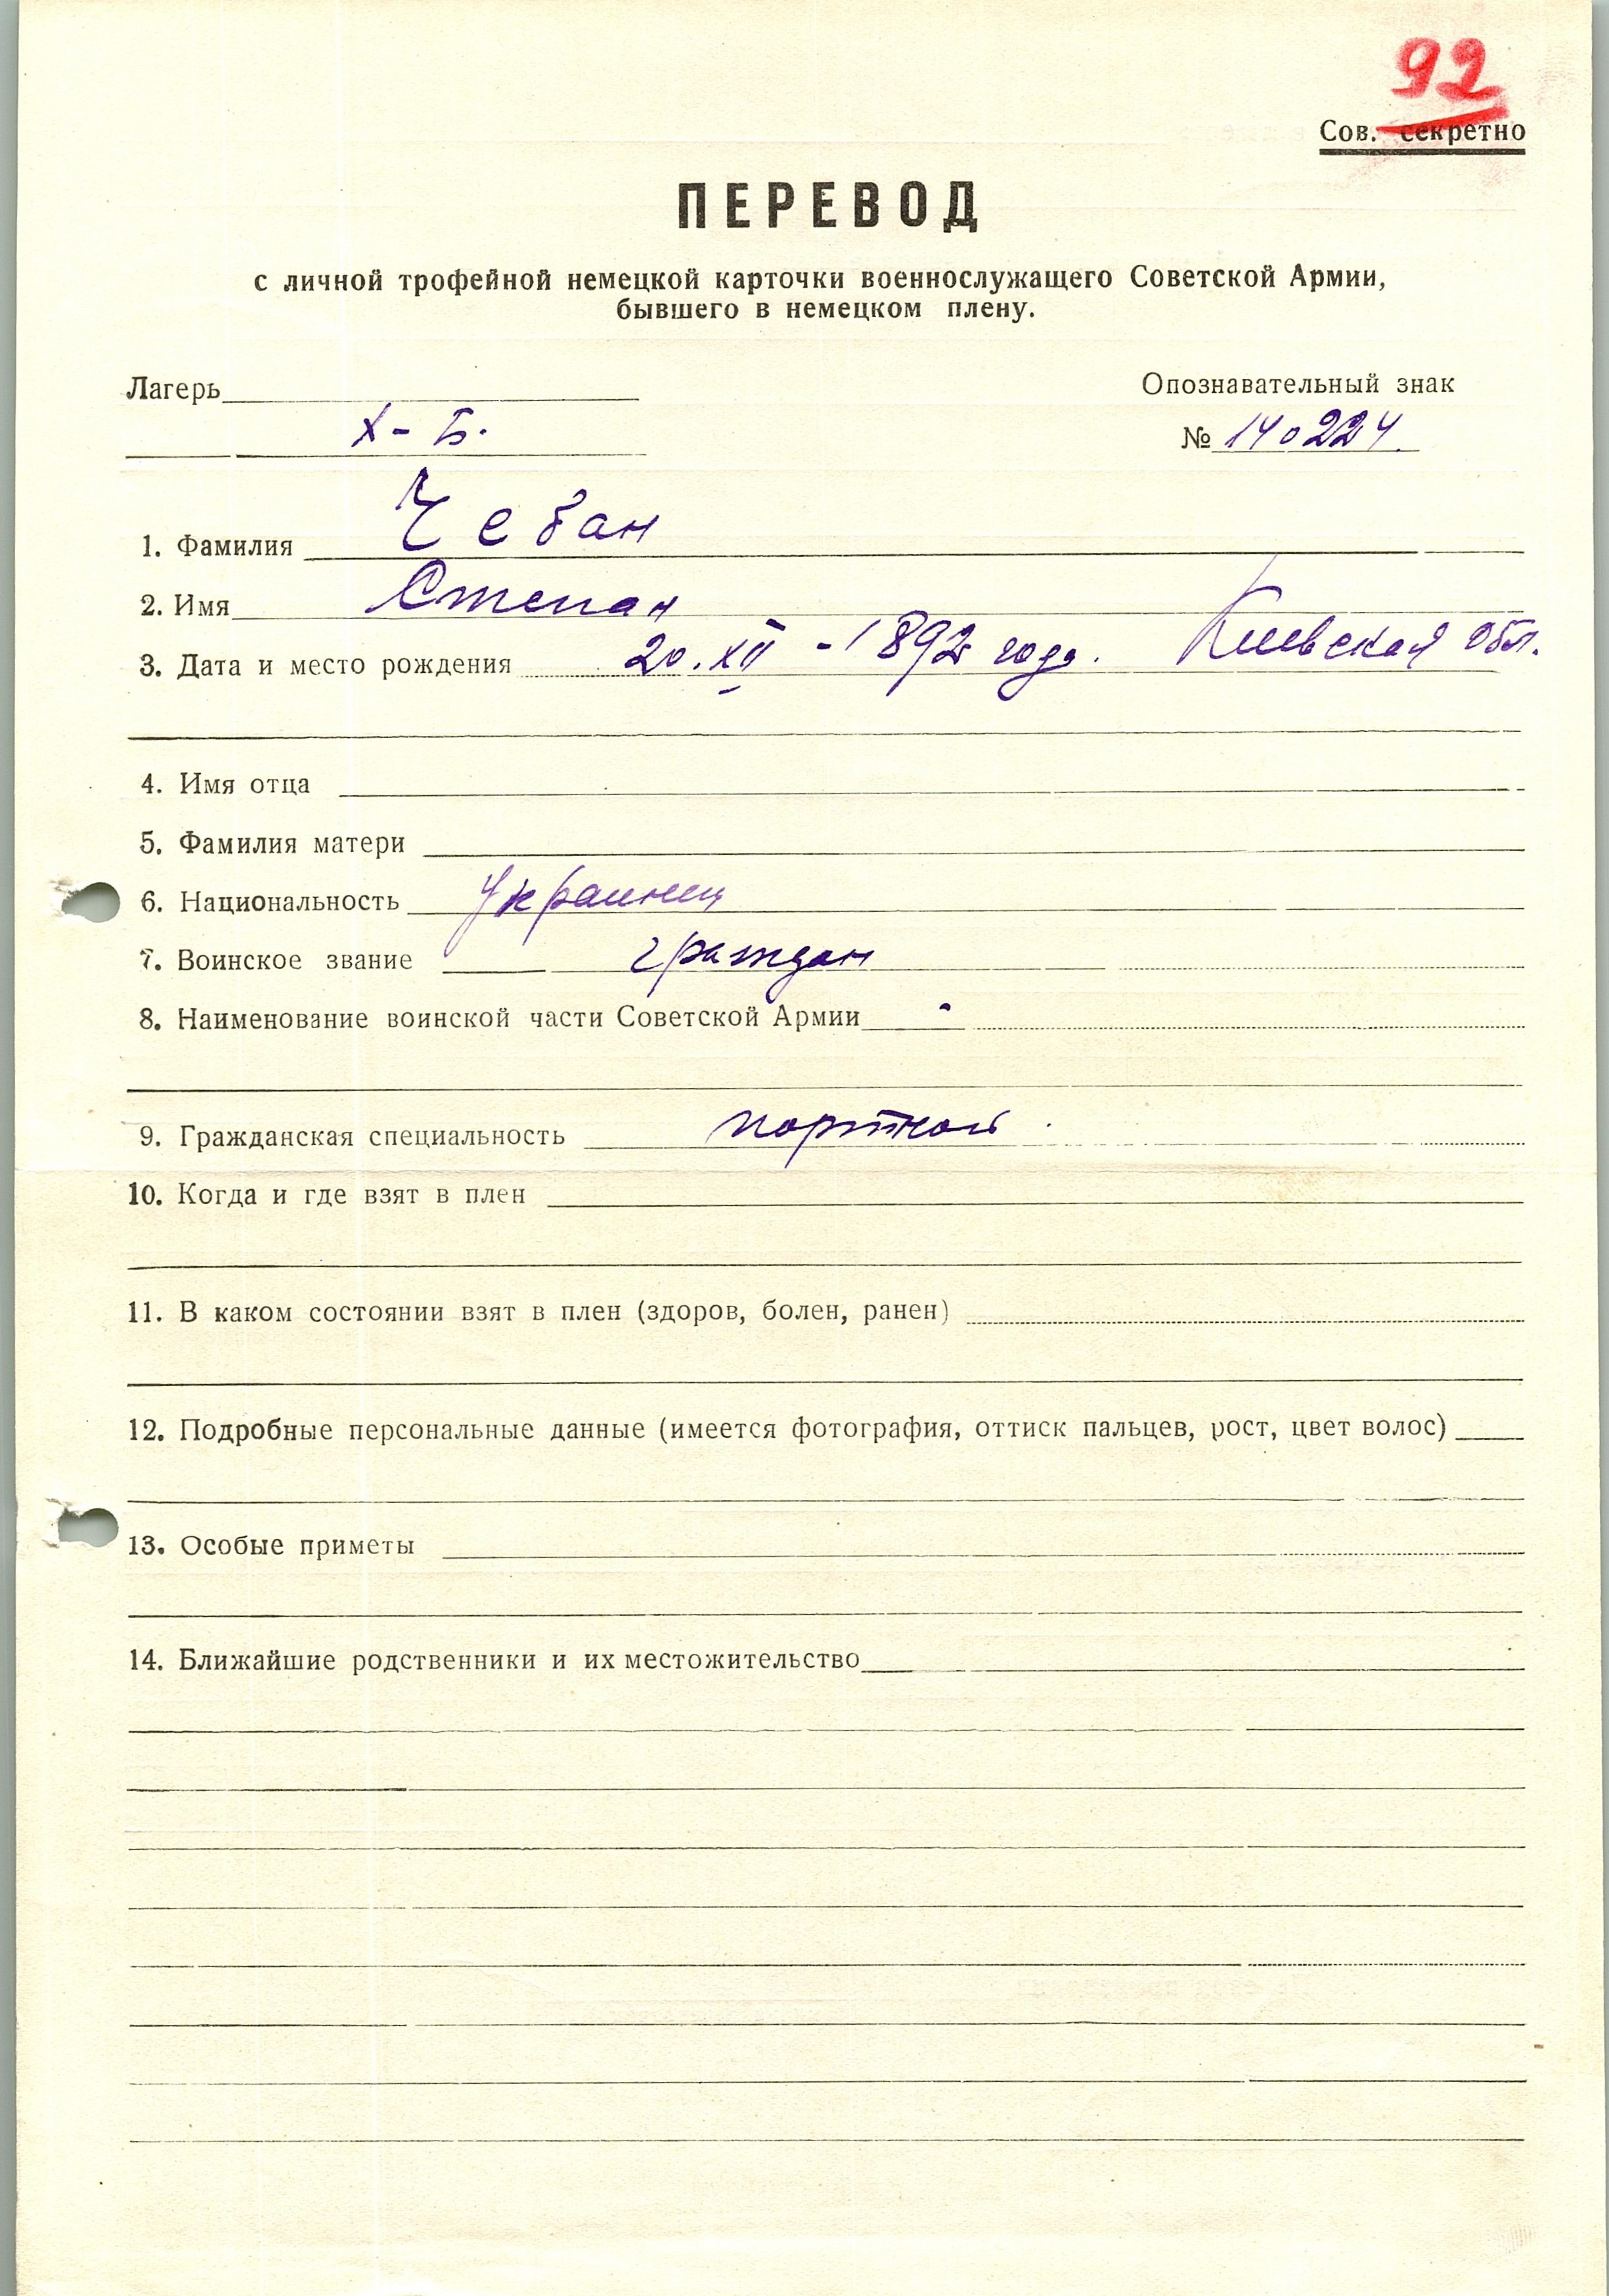 92
Сов. секретно
ПЕРЕВОД
с личной трофейной немецкой карточки военнослужащего Советской Армии,
бывшего в немецком плену.
Лагерь Опознавательный знак
Х - Б. № 140224.
1. Фамилия Чебан
2. Имя Степан
3. Дата и место рождения 20.XII - 1892 года. Киевская обл.
4. Имя отца
5. Фамилия матери
6. Национальность Украинец
7. Воинское звание граждан
8. Наименование воинской части Советской Армии -
9. Гражданская специальность портной.
10. Когда и где взят в плен
11. В каком состоянии взят в плен (здоров, болен, ранен)
12. Подробные персональные данные (имеется фотография, оттиск пальцев, рост, цвет волос)
13. Особые приметы
14. Ближайшие родственники и их местожительство